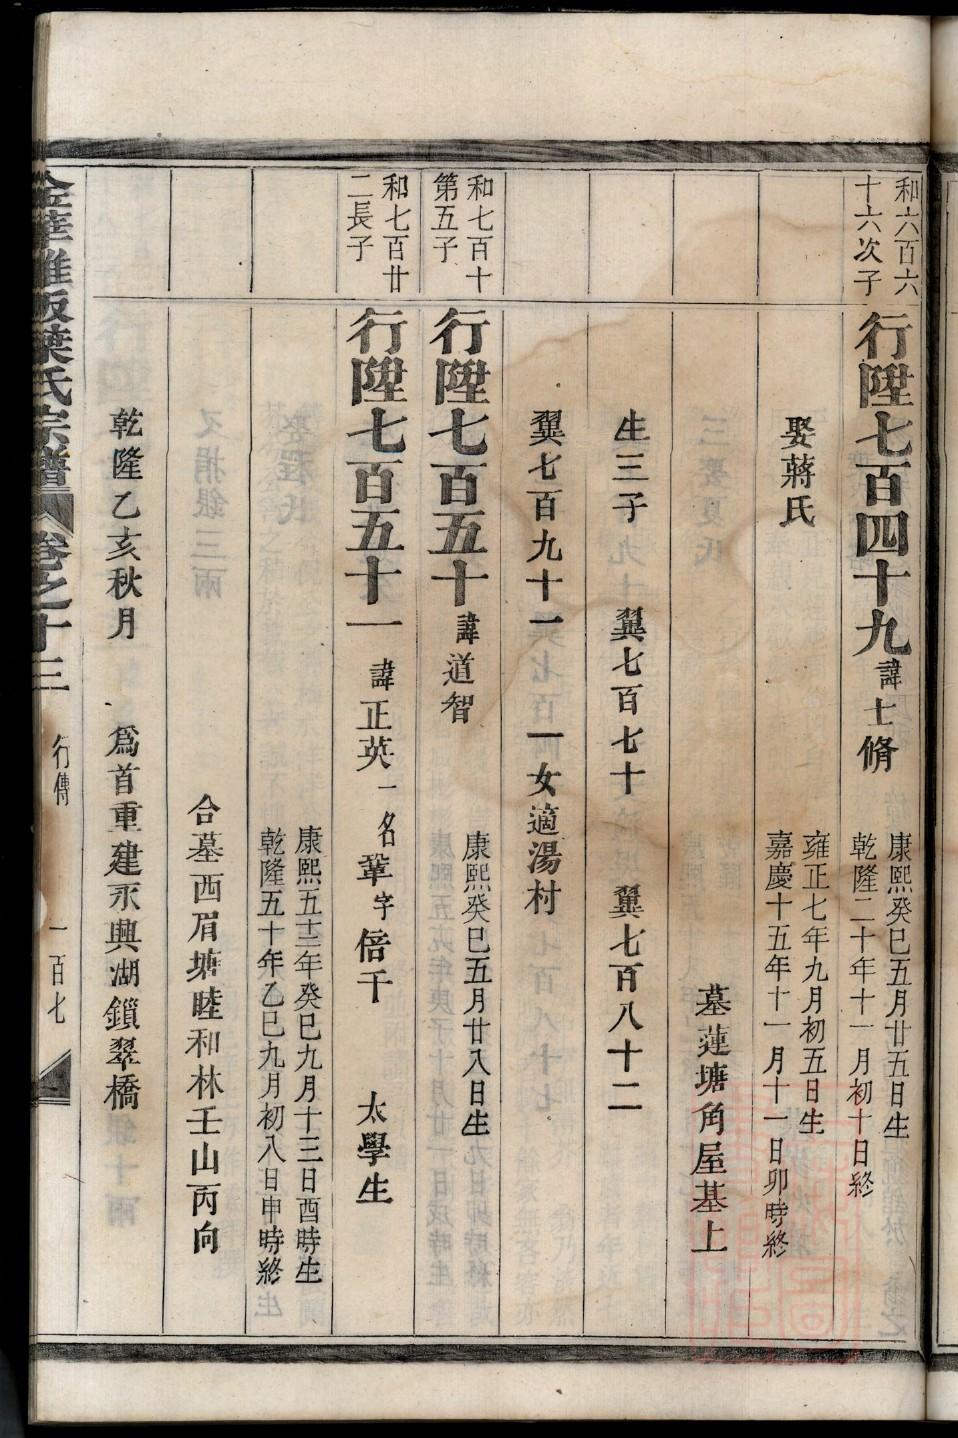 和六百六
十六次子
行陞七百四十九 諱士脩
康熙癸巳五月廿五日生
乾隆二十年十一月初十日終
娶蔣氏
雍正七年九月初五日生
嘉慶十五年十一月十一日卯時終
墓蓮塘角屋基上
生三子 翼七百七十 翼七百八十二
翼七百九十一 一女適湯村
和七百十
第五子
行陞七百五十 諱道智
康熙癸巳五月廿八日生
和七百廿
二長子
行陞七百五十一 諱正英 一名鞏 字倍千 太學生
康熙五十二年癸巳九月十三日酉時生
乾隆五十年乙巳九月初八日申時終
合墓西眉塘睦和林壬山丙向
乾隆乙亥秋月 爲首重建永興湖鎖翠橋
金華雅畈葉氏宗譜 卷之十三 行傳 一百七